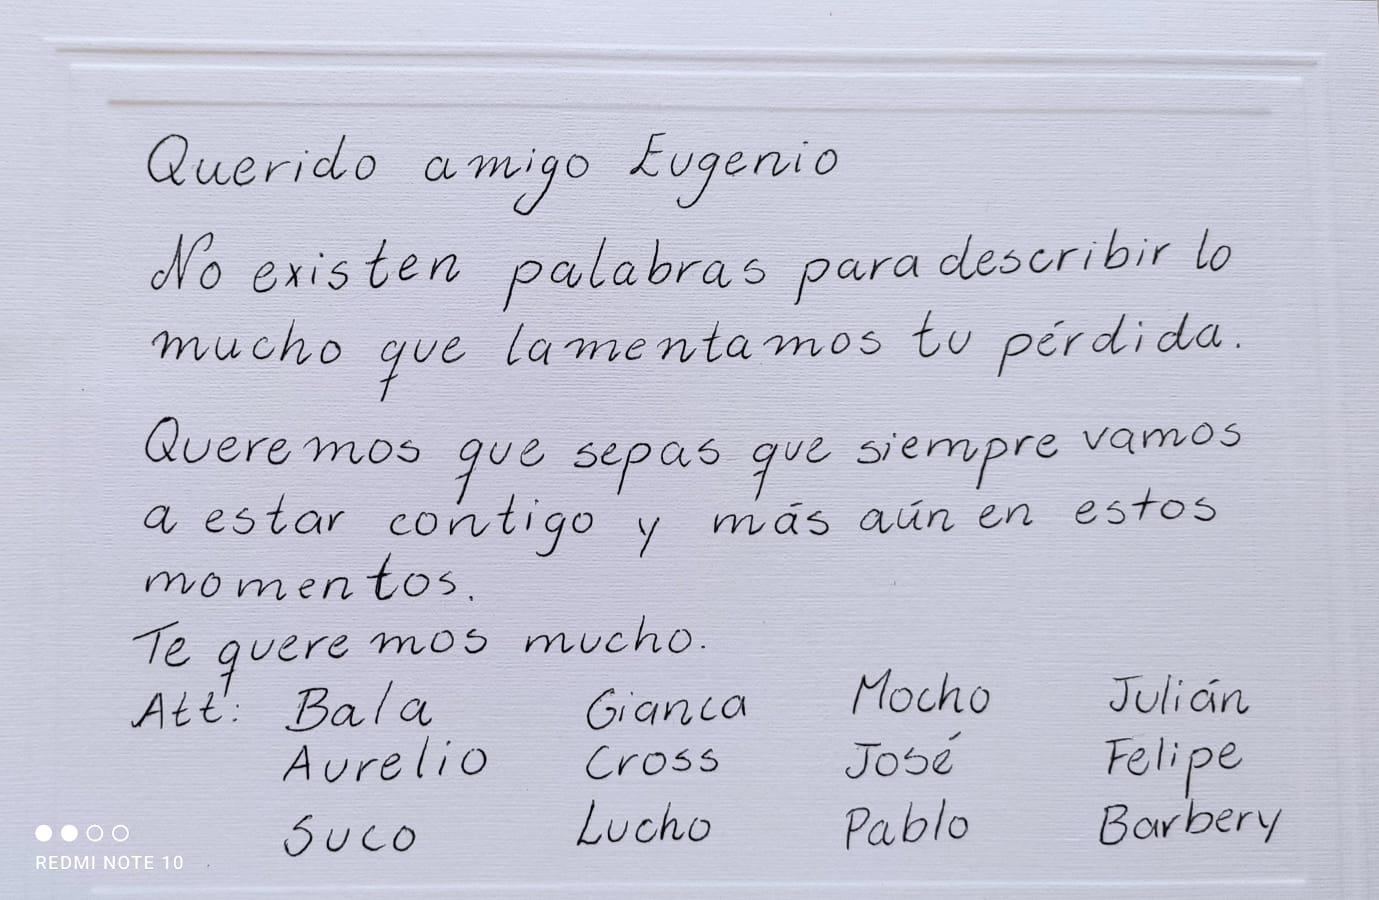 Querido amigo Eugenio
No existen palabras para describir lo
mucho que lamentamos tu pérdida.
Queremos que sepas que siempre vamos
a estar contigo y más aún en estos
momentos.
Te queremos mucho.
Att: Bala Gianca Mocho Julián
Aurelio Cross José Felipe
Suco Lucho Pablo Barbery
REDMI NOTE 10